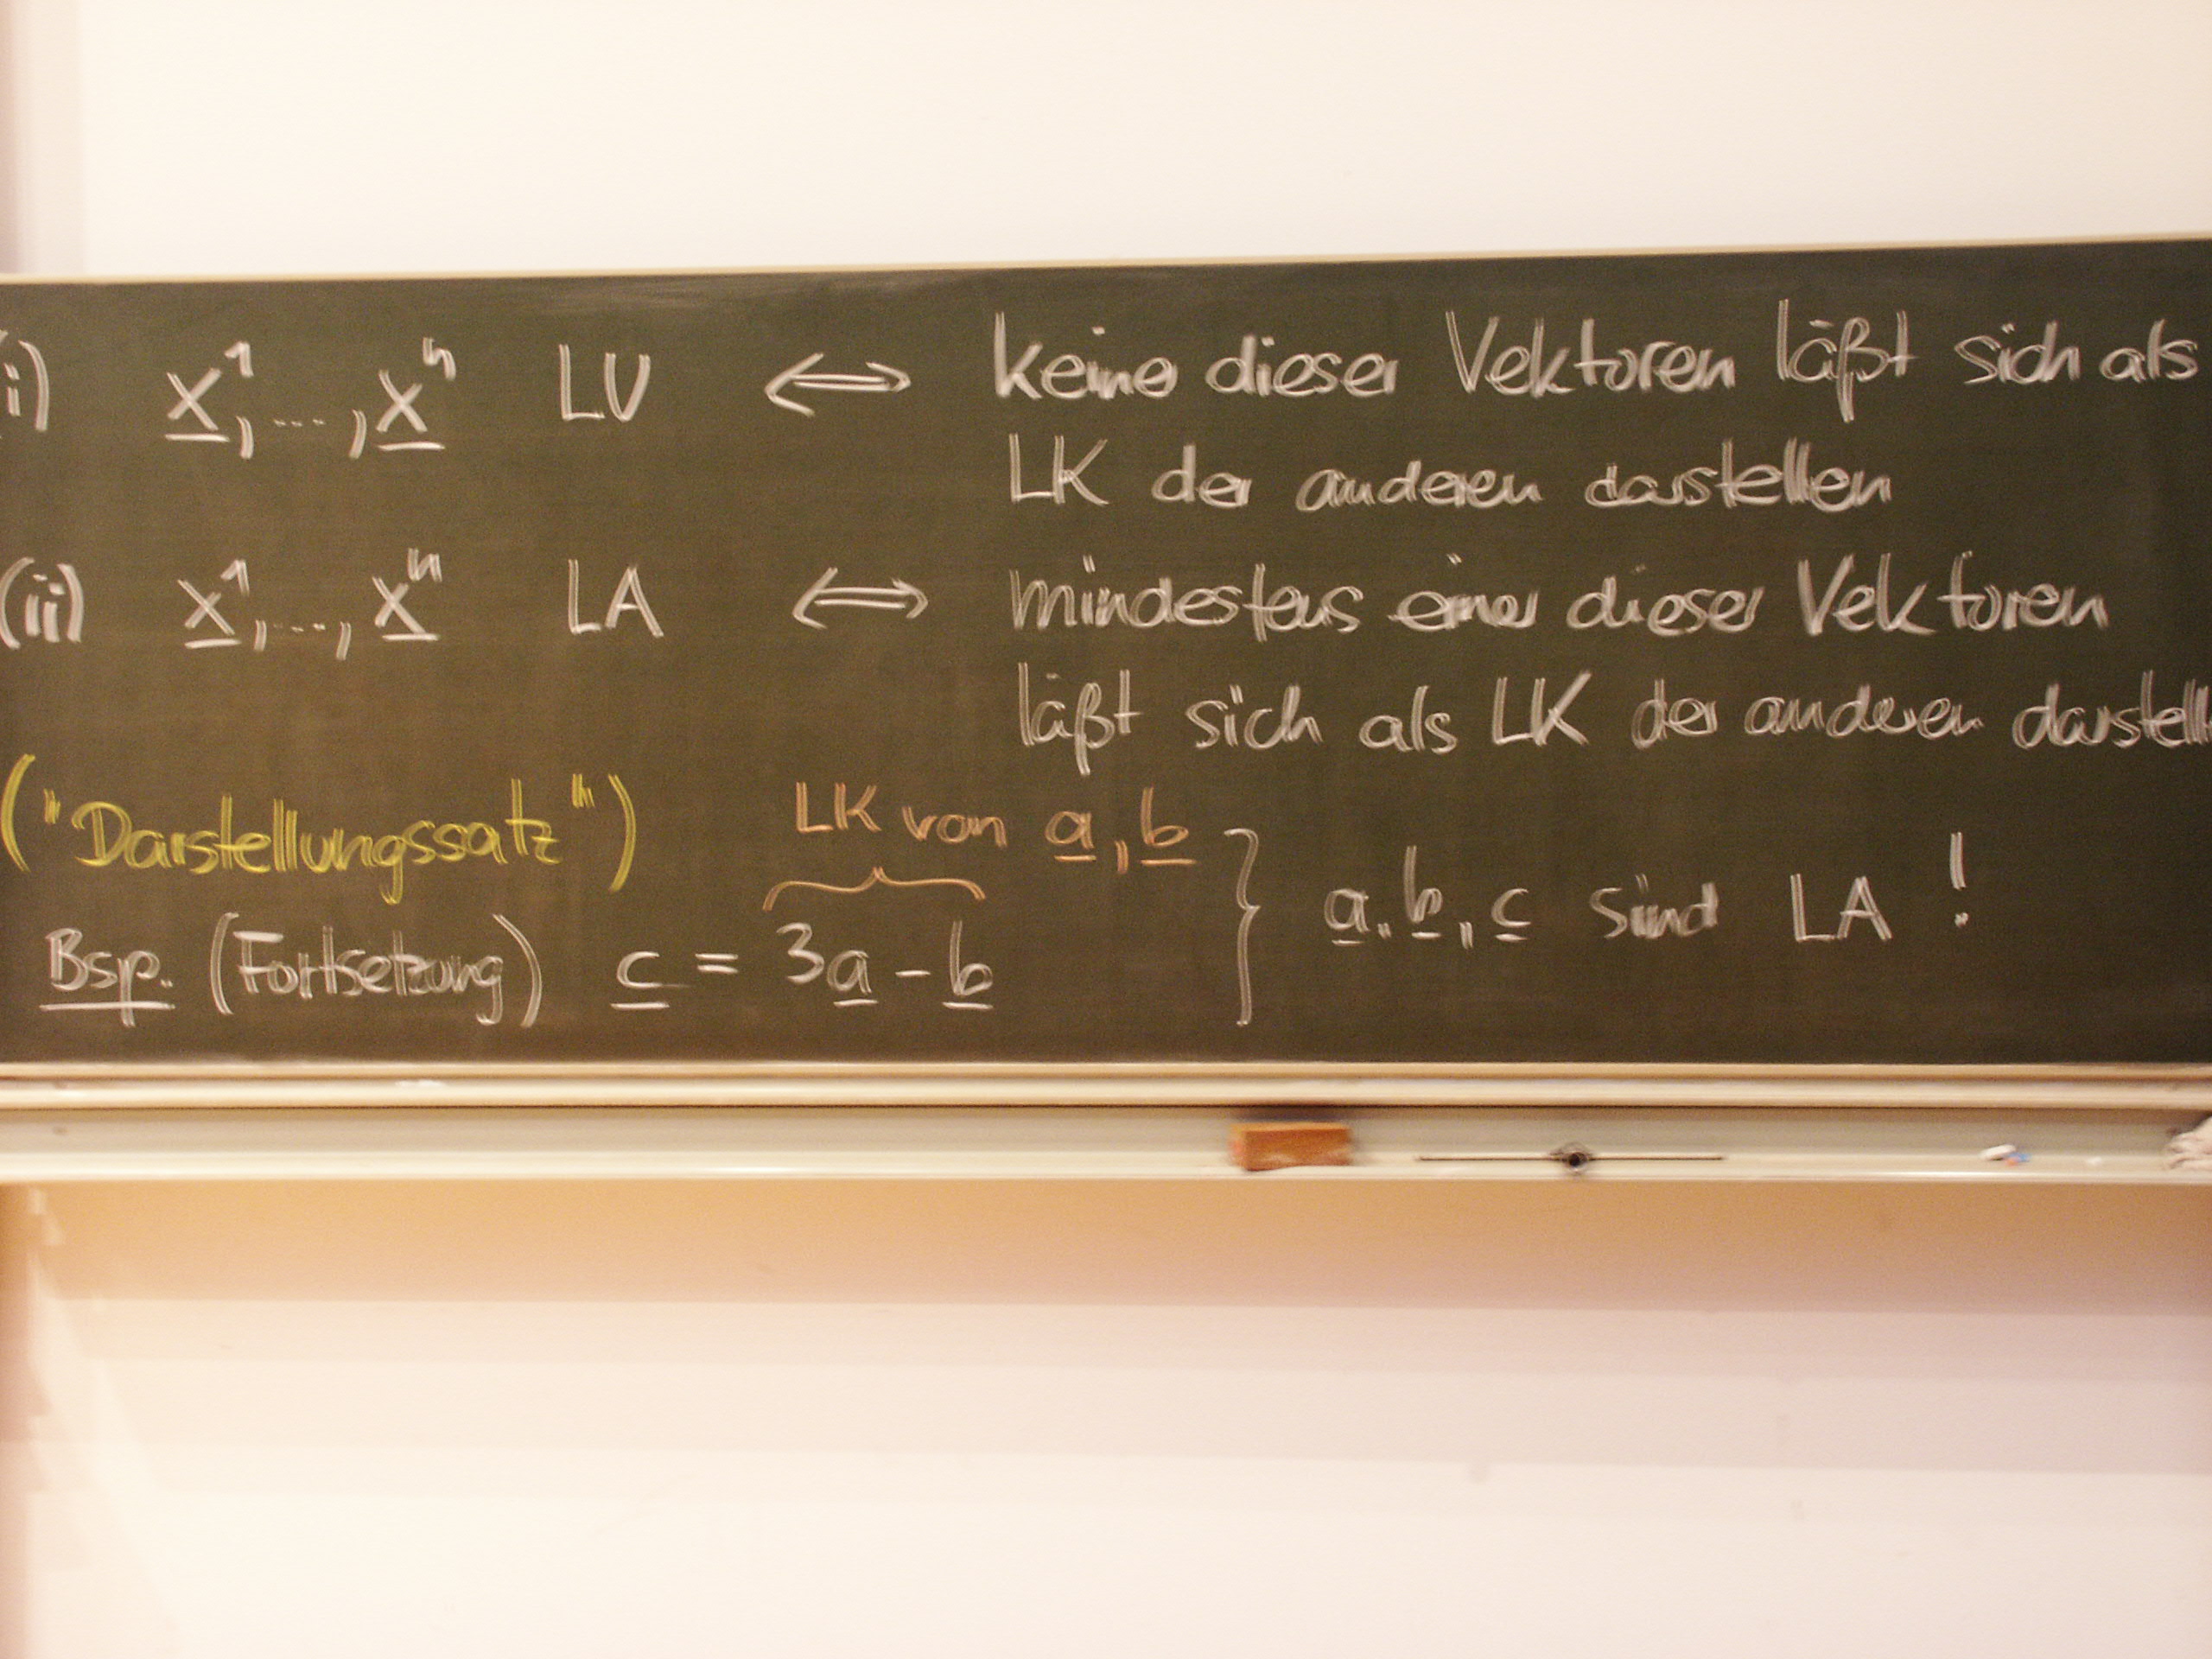 i) x¹, ..., xⁿ LU ⟺ keiner dieser Vektoren läßt sich als
LK der anderen darstellen
(ii) x¹, ..., xⁿ LA ⟺ mindestens einer dieser Vektoren
läßt sich als LK der anderen darstell
("Darstellungssatz")
LK von a, b
Bsp. (Fortsetzung) c = 3a - b } a, b, c sind LA !